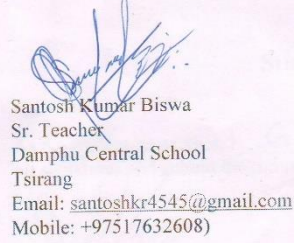 Santosh Kumar Biswa
Sr. Teacher
Damphu Central School
Tsirang
Email: santoshkr4545@gmail.com
Mobile: +97517632608)